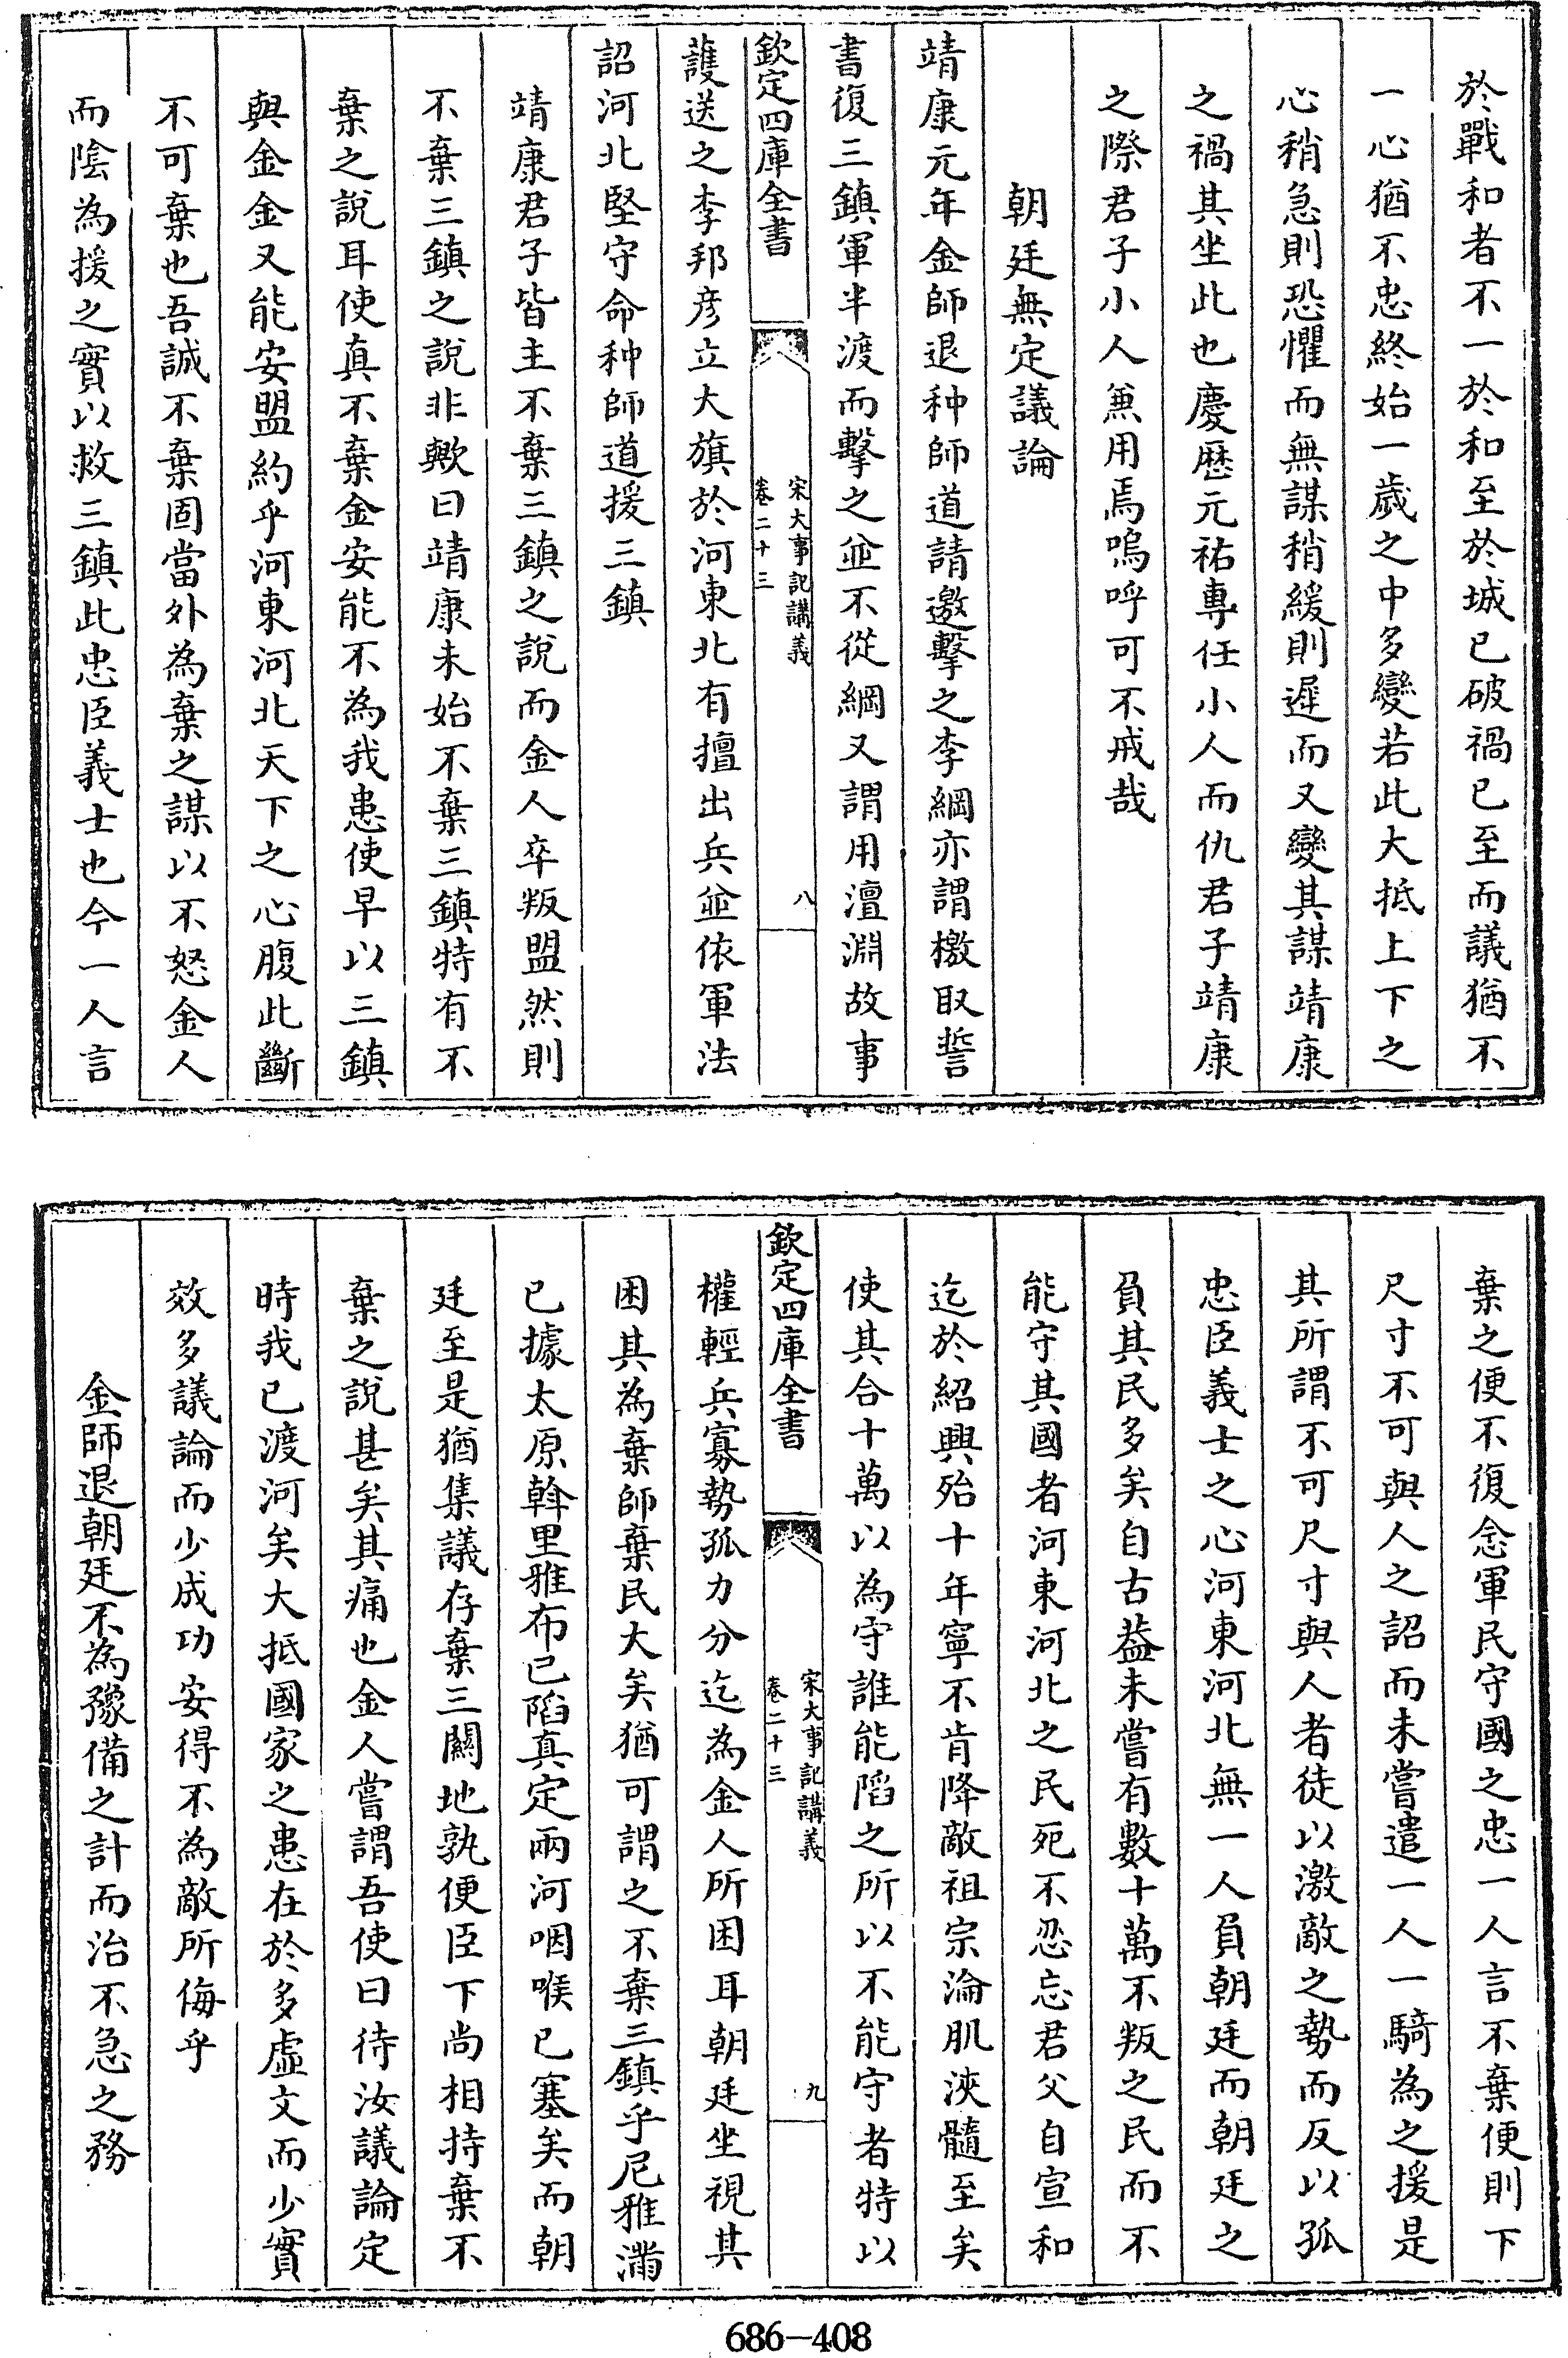 於戰和者不一於和至於城已破禍已至而議猶不
一心猶不忠終始一歲之中多變若此大抵上下之
心稍急則恐懼而無謀稍緩則遲而又變其謀靖康
之禍其坐此也慶厯元祐專任小人而仇君子靖康
之際君子小人兼用焉嗚呼可不戒哉
朝廷無定議論
靖康元年金師退种師道請邀擊之李綱亦謂檄取誓
書復三鎮軍半渡而擊之並不從綱又謂用澶淵故事
欽定四庫全書
宋大事記講義
卷二十三
八
護送之李邦彦立大旗於河東北有擅出兵並依軍法
詔河北堅守命种師道援三鎮
靖康君子皆主不棄三鎮之說而金人卒叛盟然則
不棄三鎮之說非歟曰靖康未始不棄三鎮特有不
棄之說耳使真不棄金安能不為我患使早以三鎮
與金金又能安盟約乎河東河北天下之心腹此斷
不可棄也吾誠不棄固當外為棄之謀以不怒金人
而陰為援之實以救三鎮此忠臣義士也今一人言
棄之便不復念軍民守國之忠一人言不棄便則下
尺寸不可與人之詔而未嘗遣一人一騎為之援是
其所謂不可尺寸與人者徒以激敵之勢而反以孤
忠臣義士之心河東河北無一人負朝廷而朝廷之
負其民多矣自古葢未嘗有數十萬不叛之民而不
能守其國者河東河北之民死不忍忘君父自宣和
迄於紹興殆十年寧不肯降敵祖宗淪肌浹髓至矣
使其合十萬以為守誰能陷之所以不能守者特以
欽定四庫全書
宋大事記講義
卷二十三
九
權輕兵寡勢孤力分迄為金人所困耳朝廷坐視其
困其為棄師棄民大矣猶可謂之不棄三鎮乎尼雅滿
已據太原斡里雅布已陷真定兩河咽喉已塞矣而朝
廷至是猶集議存棄三關地孰便臣下尚相持棄不
棄之說甚矣其痛也金人嘗謂吾使曰待汝議論定
時我已渡河矣大抵國家之患在於多虛文而少實
效多議論而少成功安得不為敵所侮乎
金師退朝廷不為豫備之計而治不急之務
686-408